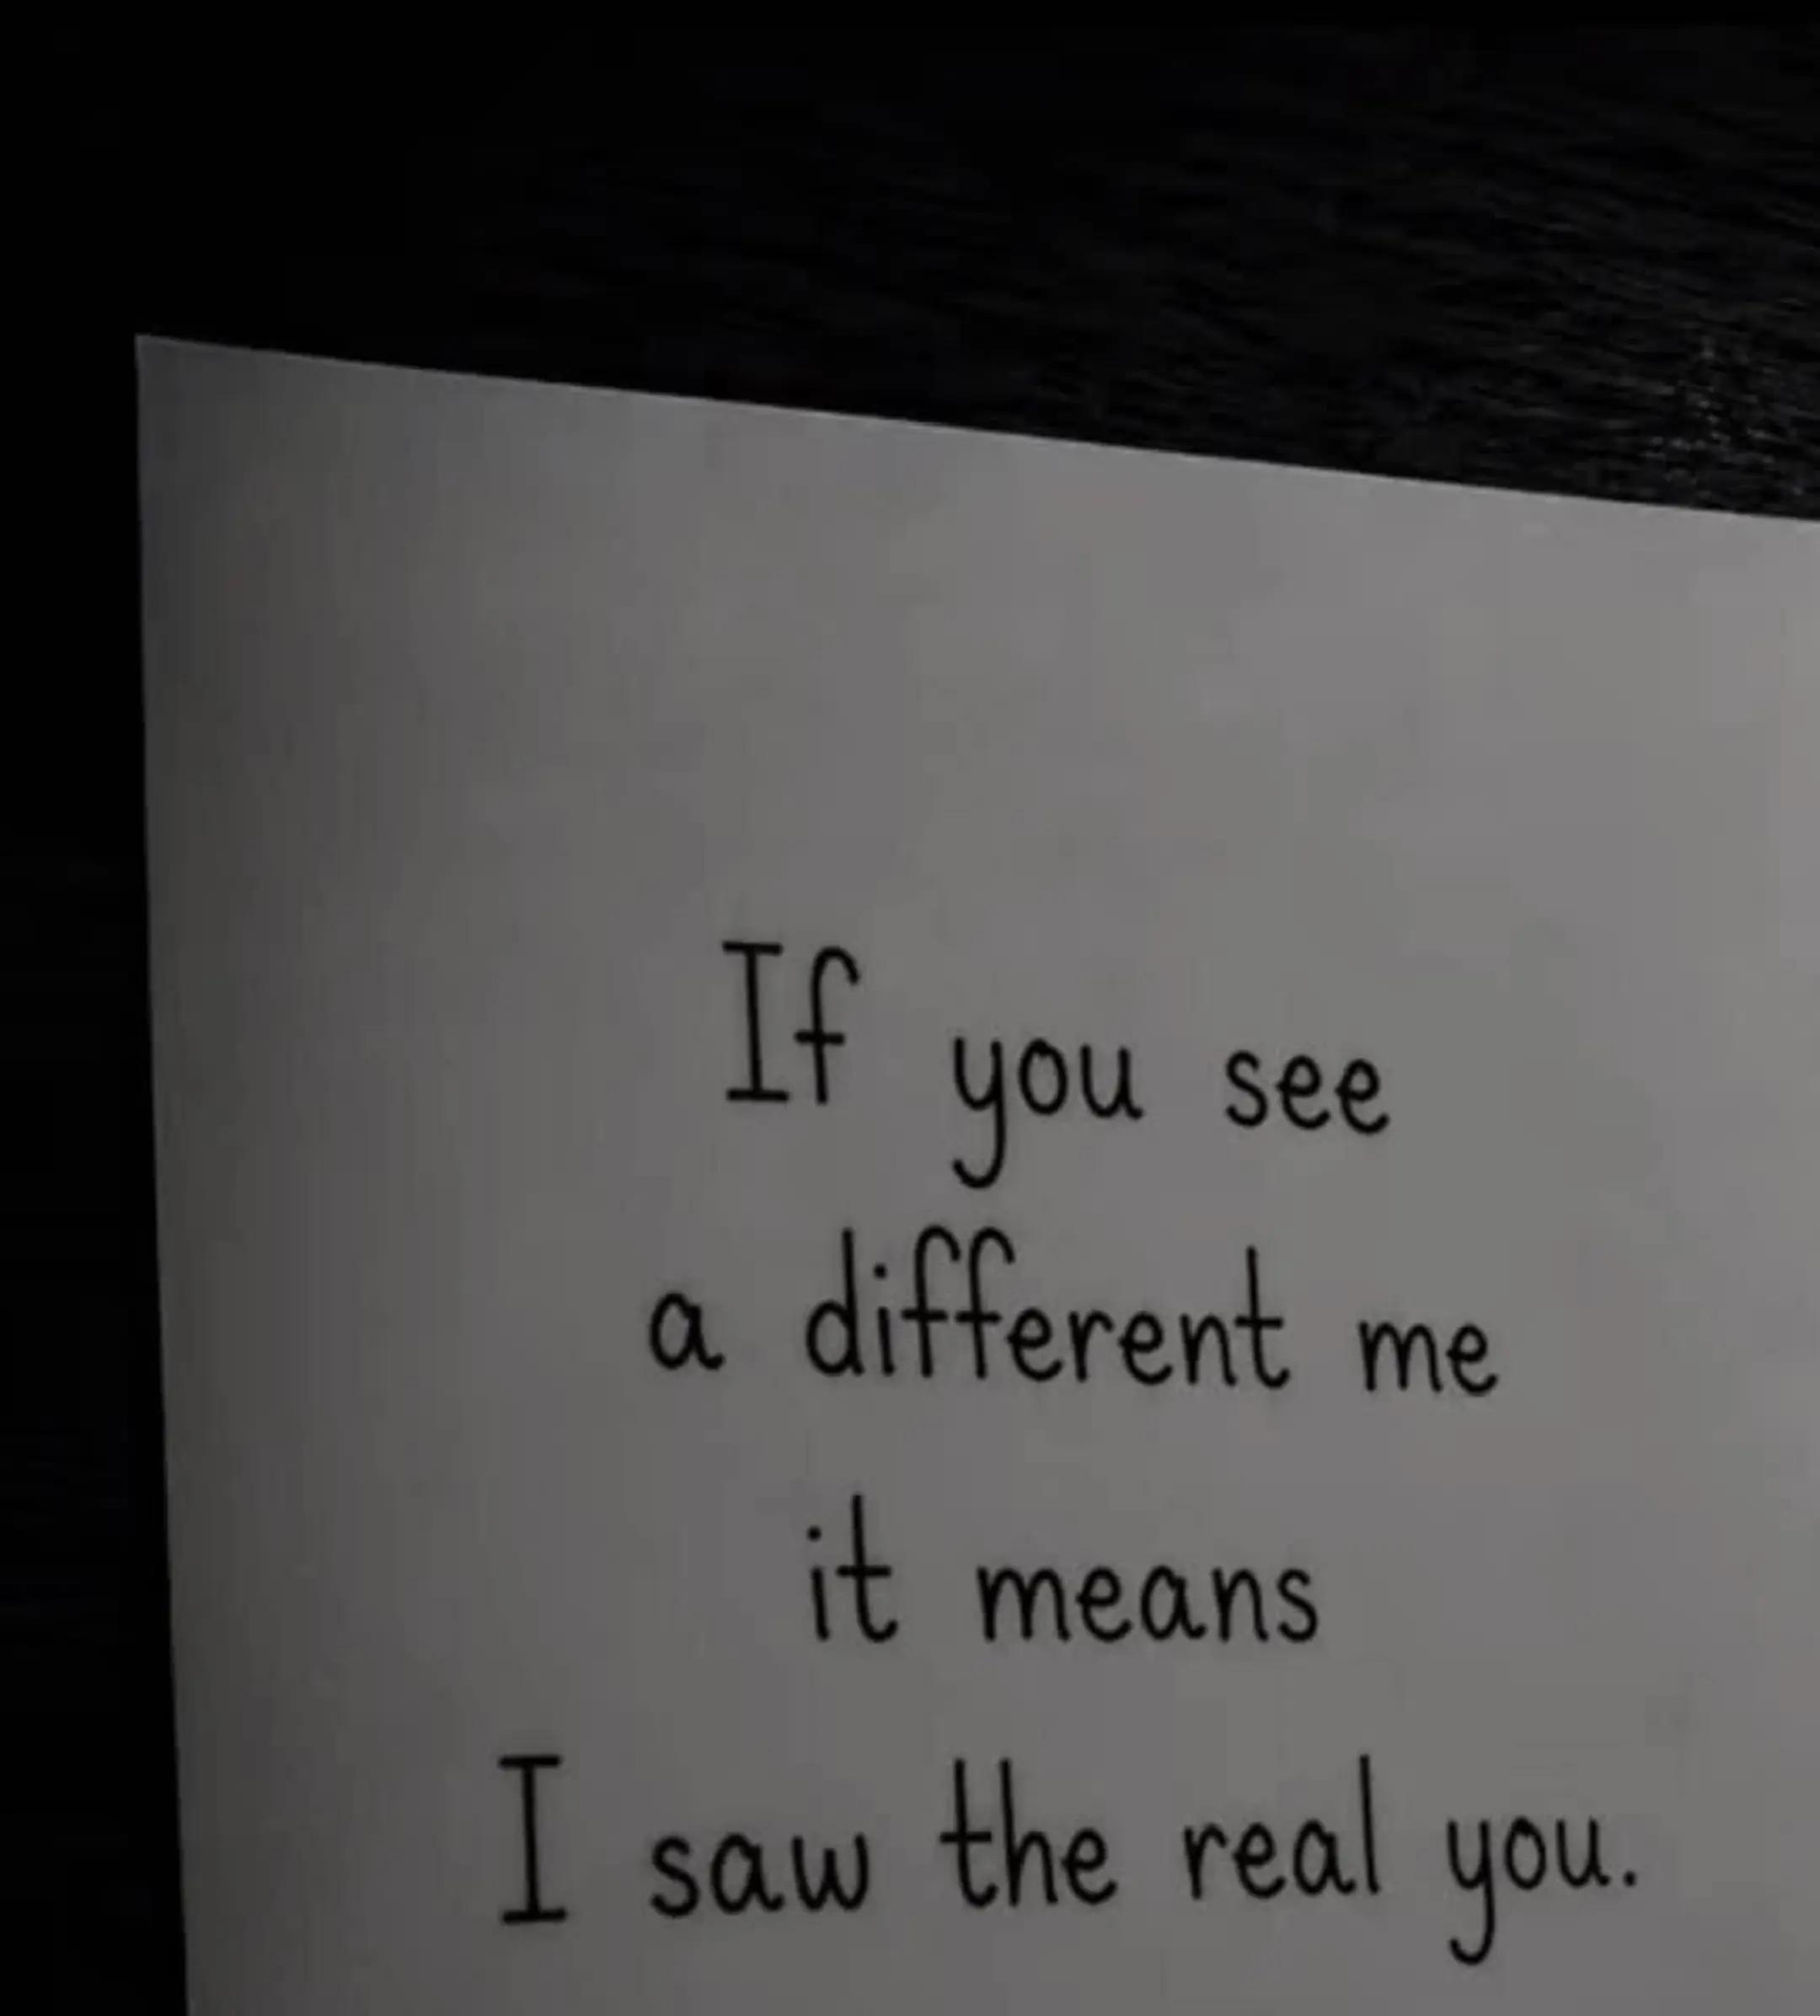 If you see
a different me
it means
I saw the real you.